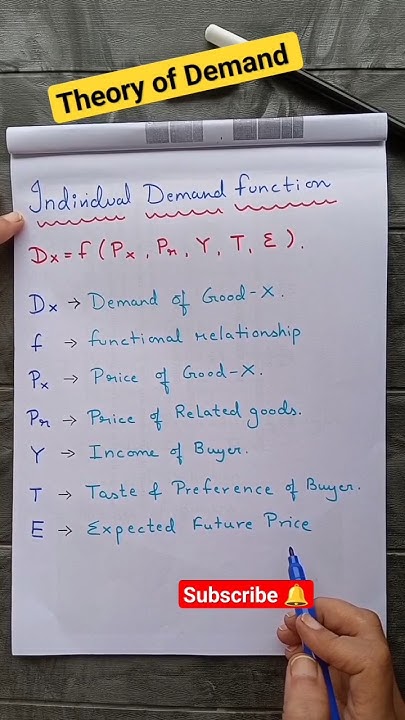 Theory of Demand
Individual Demand function
Dx = f ( Px , Pr , Y , T , E ) .
Dx → Demand of Good-X.
f → functional relationship
Px → Price of Good-X.
Pr → Price of Related goods.
Y → Income of Buyer.
T → Taste & Preference of Buyer.
E → Expected Future Price
Subscribe 🔔